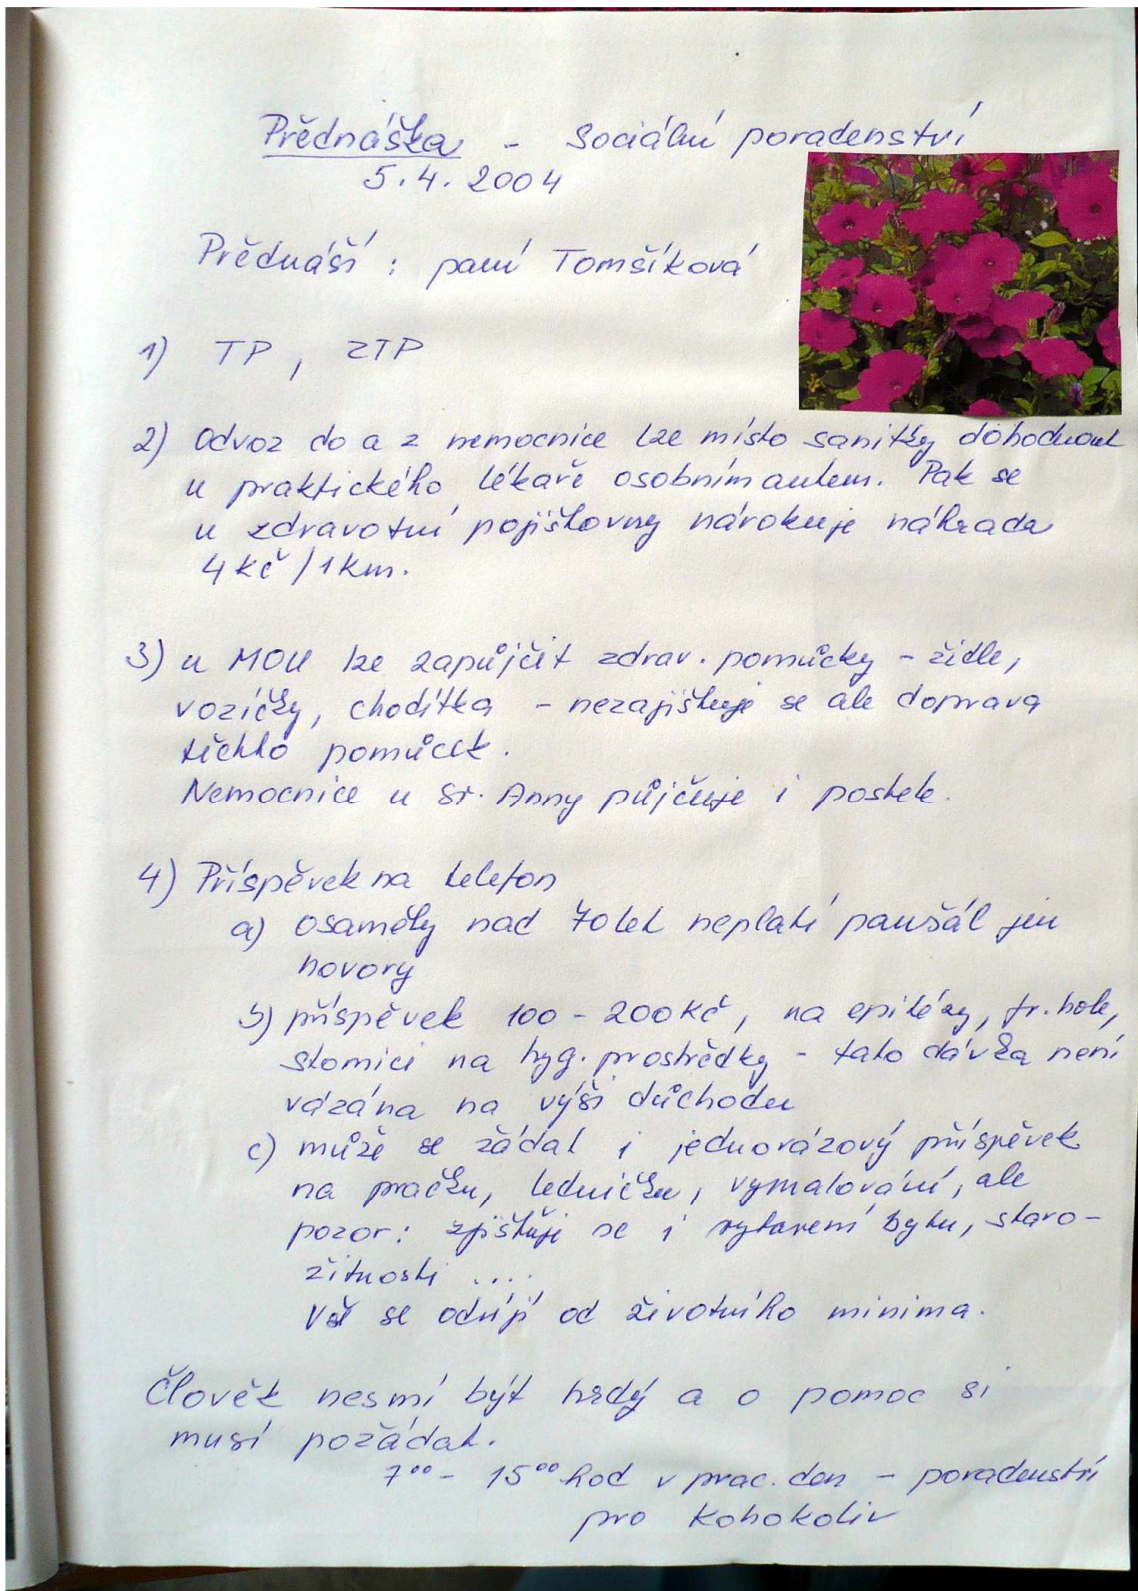 Přednáška - Sociální poradenství
5.4.2004
Přednáší : paní Tomšíková
1) TP, ZTP
2) Odvoz do a z nemocnice lze místo sanitky dohodnout
u praktického lékaře osobním autem. Pak se
u zdravotní pojišťovny nárokuje náhrada
4 kč / 1 km.
3) u MOU lze zapůjčit zdrav. pomůcky - židle,
vozíčky, chodítka - nezajišťuje se ale doprava
těchto pomůcek.
Nemocnice u Sv. Anny půjčuje i postele.
4) Příspěvek na telefon
a) osamělý nad 70 let neplatí paušál jen
hovory
b) příspěvek 100 - 200 Kč, na epitézy, fr. hole,
stomici na hyg. prostředky - tato dávka není
vázána na výši důchodu
c) může se žádat i jednorázový příspěvek
na pračku, ledničku, vymalování, ale
pozor: zjišťuje se i vybavení bytu, staro-
žitnosti ....
Vše se odvíjí od životního minima.
Člověk nesmí být hrdý a o pomoc si
musí požádat.
7⁰⁰ - 15⁰⁰ hod v prac. den - poradenství
pro kohokoliv